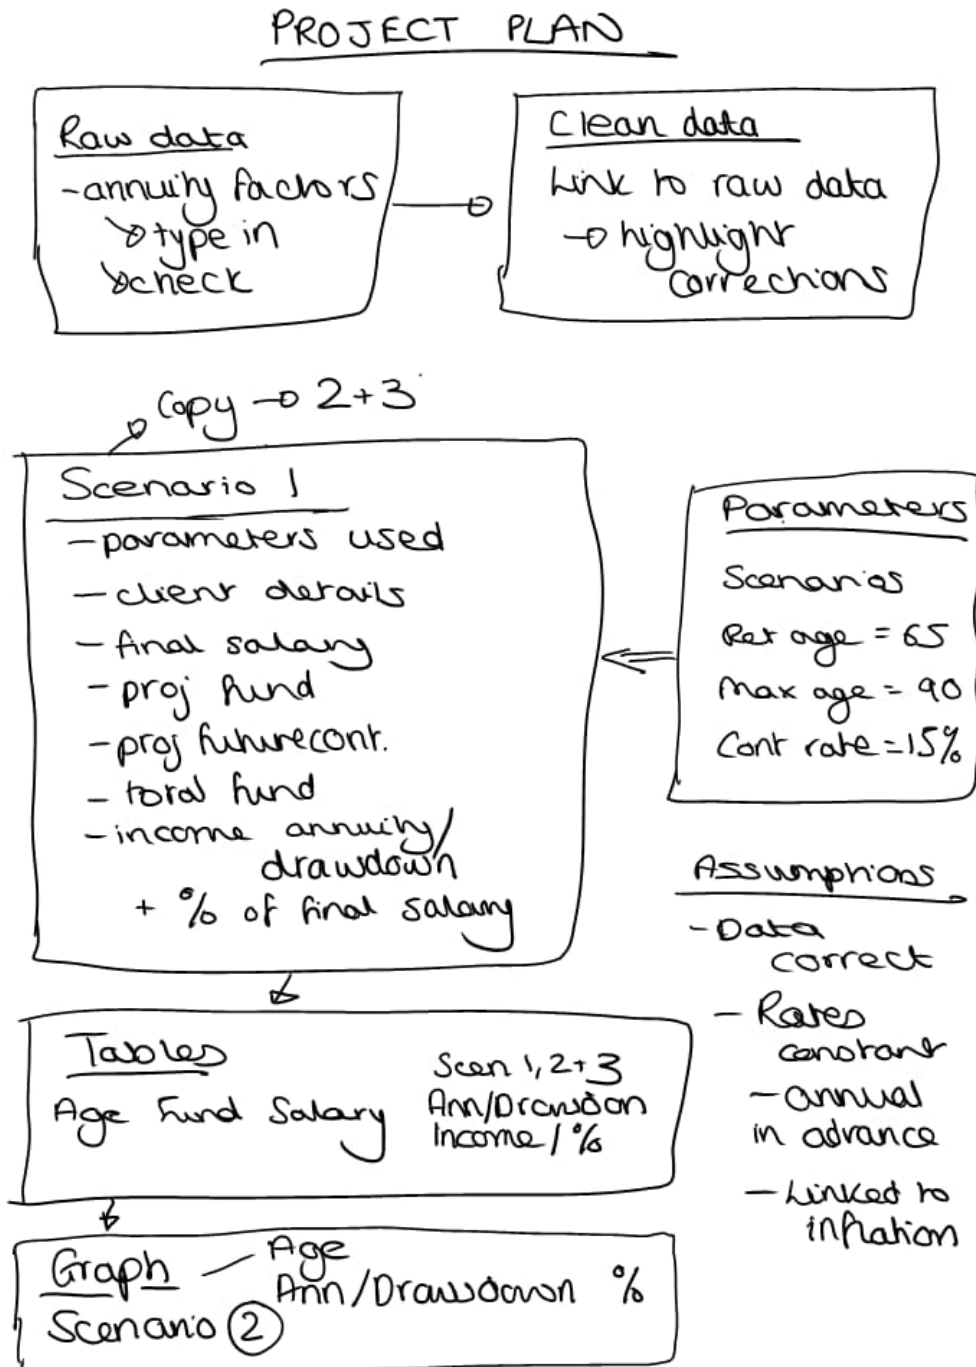 PROJECT PLAN
Raw data
- annuity factors
→ type in
→ check
Clean data
Link to raw data
→ highlight
corrections
Copy → 2+3
Scenario 1
- parameters used
- client details
- final salary
- proj fund
- proj future cont.
- total fund
- income annuity/
drawdown
+ % of final salary
Parameters
Scenarios
Ret age = 65
Max age = 90
Cont rate = 15%
Assumptions
- Data
correct
- Rates
constant
- annual
in advance
- Linked to
inflation
Tables
Age Fund Salary
Scen 1, 2+3
Ann/Drawdon
Income / %
Graph
Scenario 2
Age
Ann/Drawdown %